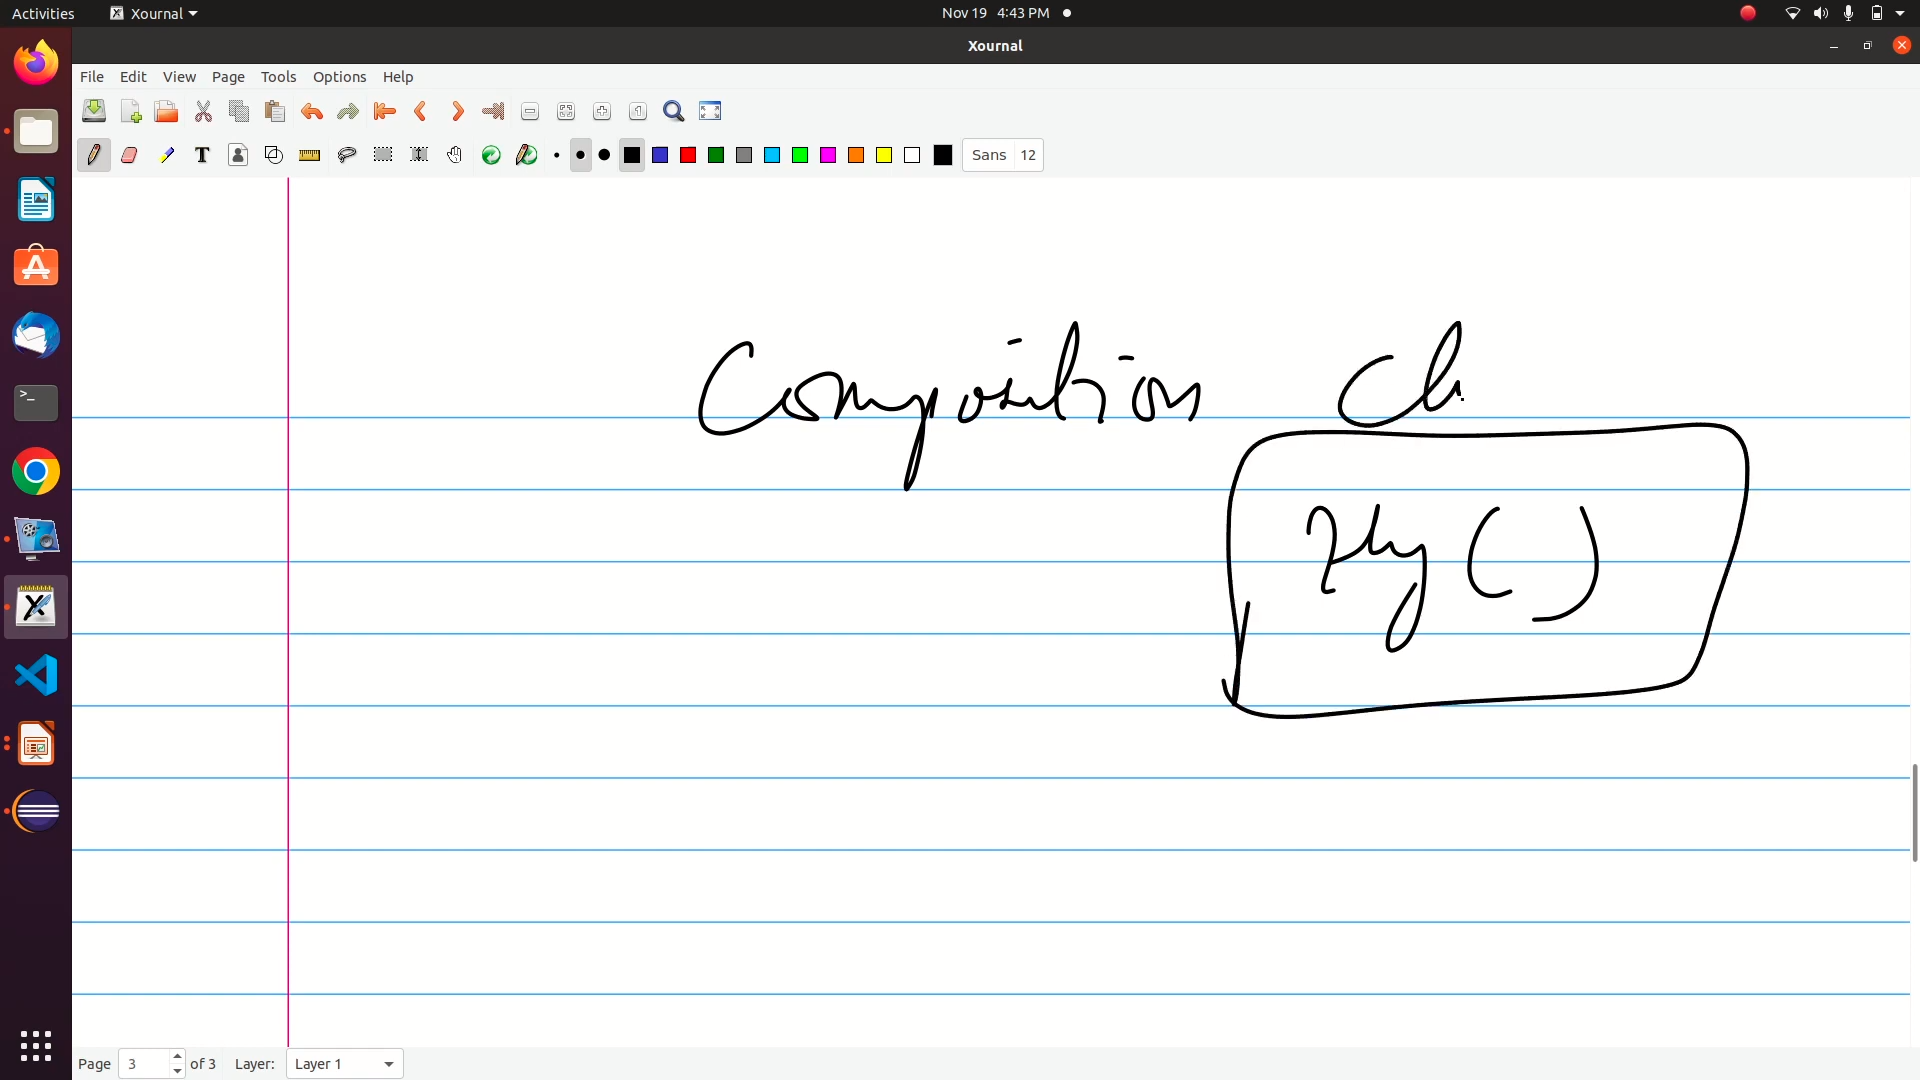 Activities Xournal Nov 19 4:43 PM
Xournal
File Edit View Page Tools Options Help
T Sans 12
Composition
Page 3 of 3 Layer: Layer 1